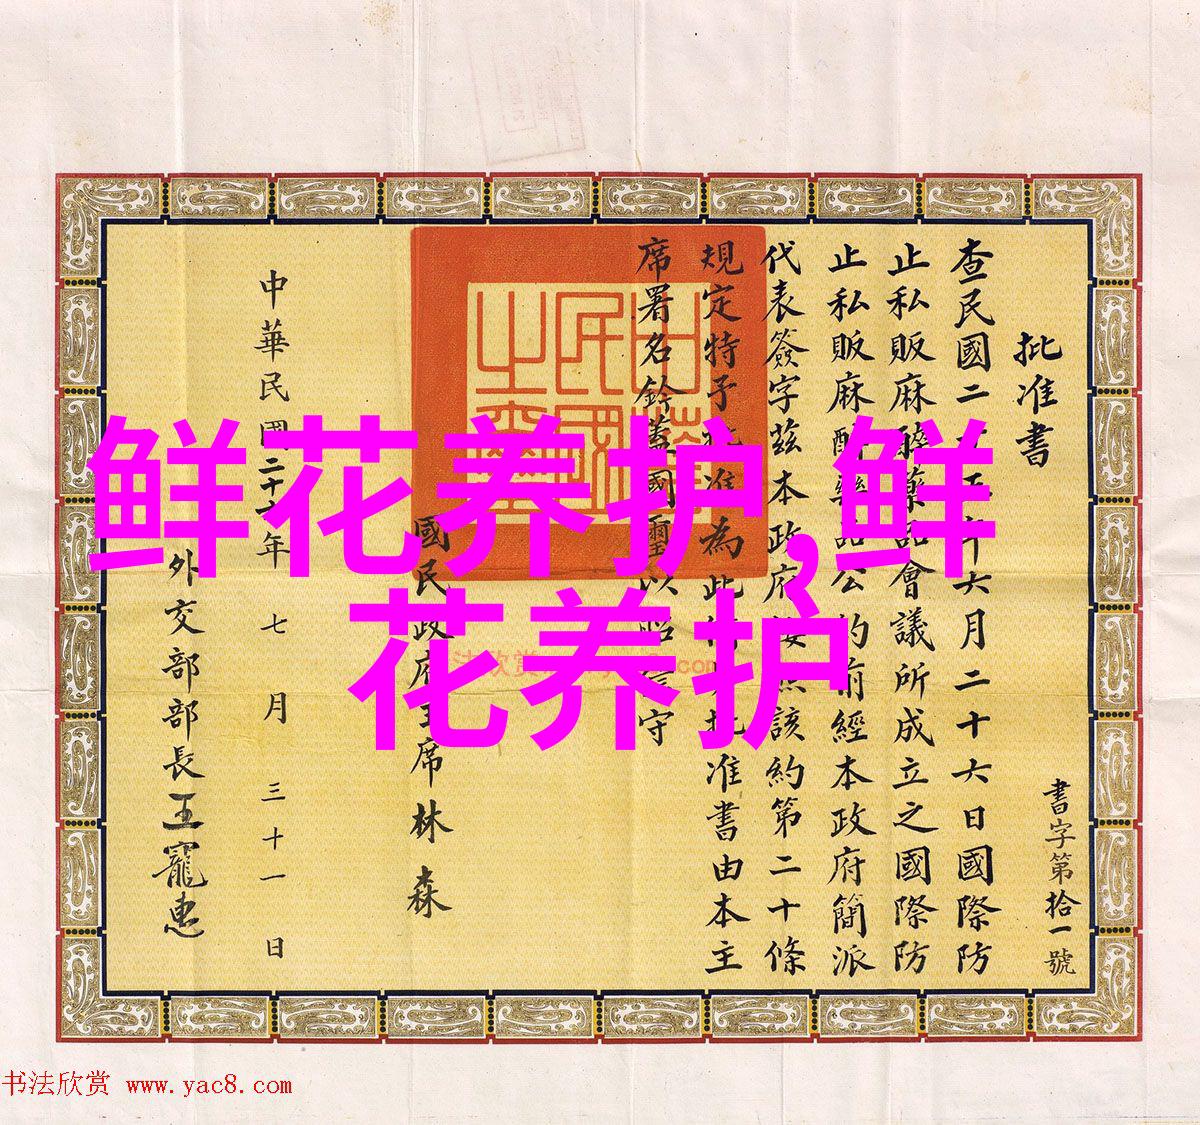 書字第拾一號
批准書
查民國二十五年六月二十六日國際防
止私販麻醉藥品會議所成立之國際防
止私販麻醉藥品公約前經本政府簡派
代表簽字茲本政府該約第二十條
規定特予批准為此批准書由本主
席署名鈐蓋國璽以昭信守
國民政府主席林森
中華民國二十六年七月三十一日
外交部部長王寵惠
中華民國之璽
鲜花养护,鲜
花养护
书法欣赏 www.yac8.com